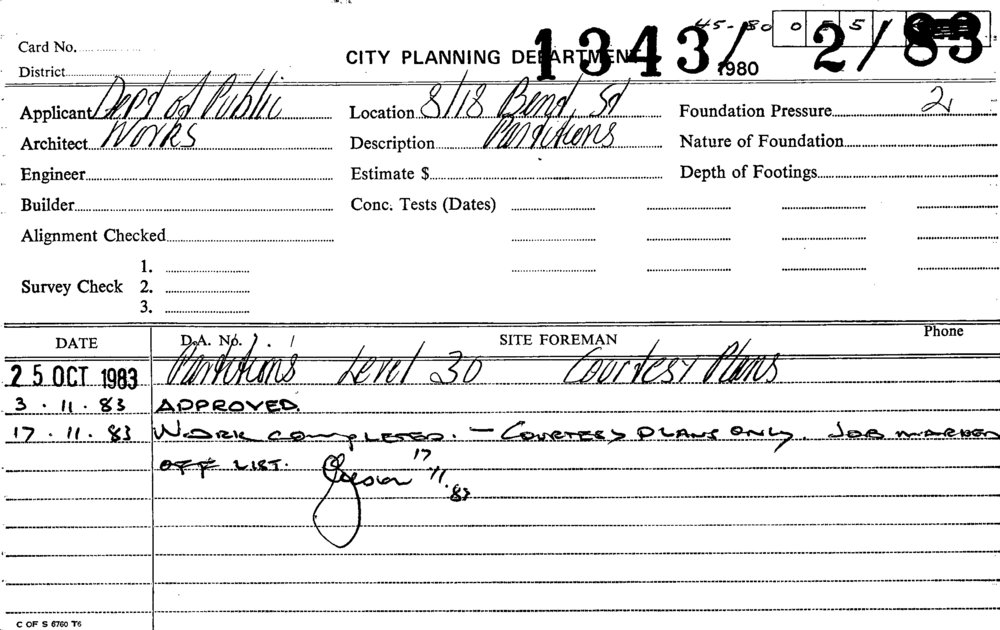 45-80 0 5 5
Card No.
CITY PLANNING DEPARTMENT 1980
1343/ 2/83
District
Applicant Dept of Public Location 8/18 Bent St Foundation Pressure 2
Architect Works Description Partitions Nature of Foundation
Engineer Estimate $ Depth of Footings
Builder Conc. Tests (Dates)
Alignment Checked
1.
Survey Check 2.
3.
DATE D.A. No. SITE FOREMAN Phone
25 OCT 1983 Partitions Level 30 Courtesy Plans
3.11.83 APPROVED.
17.11.83 WORK COMPLETED. - COURTESY PLANS ONLY. JOB MARKED
OFF LIST. 17/11.83
C OF S 6760 T6